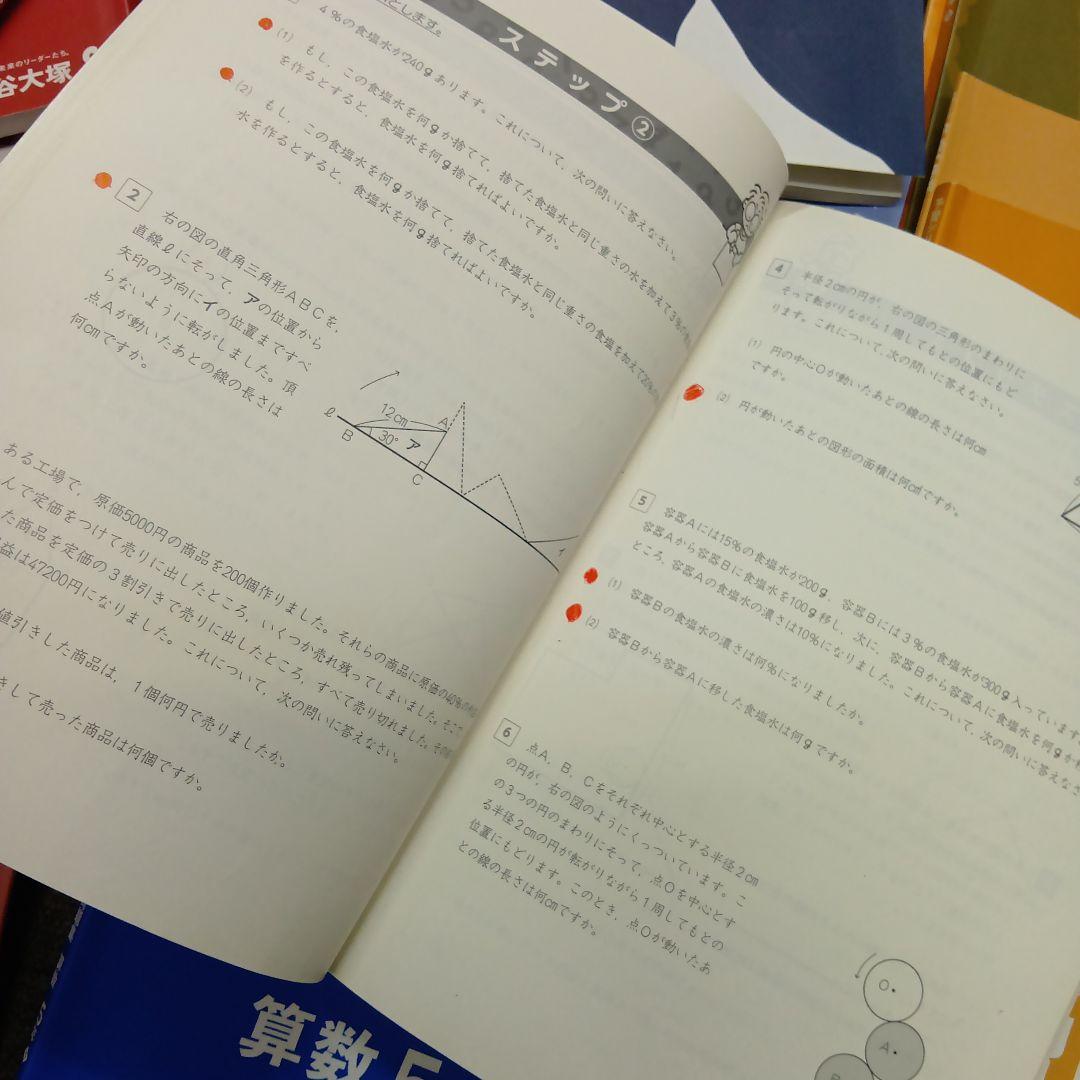 未来のリーダーたち。
谷大塚
とします。
ステップ②
4％の食塩水が240gあります。これについて、次の問いに答えなさい。
(1) もし、この食塩水を何gか捨てて、捨てた食塩水と同じ重さの水を加えて3％の
を作るとすると、食塩水を何g捨てればよいですか。
(2) もし、この食塩水を何gか捨てて、捨てた食塩水と同じ重さの食塩を加えて20％の
水を作るとすると、食塩水を何g捨てればよいですか。
2 右の図の直角三角形ABCを、
直線ℓにそって、アの位置から
矢印の方向にイの位置まですべ
らないように転がしました。頂
点Aが動いたあとの線の長さは
何cmですか。
12cm
A
ℓ
B
30°
ア
C
イ
ある工場で、原価5000円の商品を200個作りました。それらの商品に原価の40％の
んで定価をつけて売りに出したところ、いくつか売れ残ってしまいました。そこで
た商品を定価の3割引きで売りに出したところ、すべて売り切れました。その
益は47200円になりました。これについて、次の問いに答えなさい。
値引きした商品は、1個何円で売りましたか。
きして売った商品は何個ですか。
4 半径2cmの円が、右の図の三角形のまわりに
そって転がりながら1周してもとの位置にもど
ります。これについて、次の問いに答えなさい。
(1) 円の中心Oが動いたあとの線の長さは何cm
ですか。
(2) 円が動いたあとの図形の面積は何cm²ですか。
5
5 容器Aには15％の食塩水が200g、容器Bには3％の食塩水が300g入っています
容器Aから容器Bに食塩水を100g移し、次に、容器Bから容器Aに食塩水を何gか移
ところ、容器Aの食塩水の濃さは10％になりました。これについて、次の問いに答えなさ
(1) 容器Bの食塩水の濃さは何％になりましたか。
(2) 容器Bから容器Aに移した食塩水は何gですか。
6 点A、B、Cをそれぞれ中心とする半径2cm
の円が、右の図のようにくっついています。こ
の3つの円のまわりにそって、点Oを中心とす
る半径2cmの円が転がりながら1周してもとの
位置にもどります。このとき、点Oが動いたあ
との線の長さは何cmですか。
O
A
B
算数5